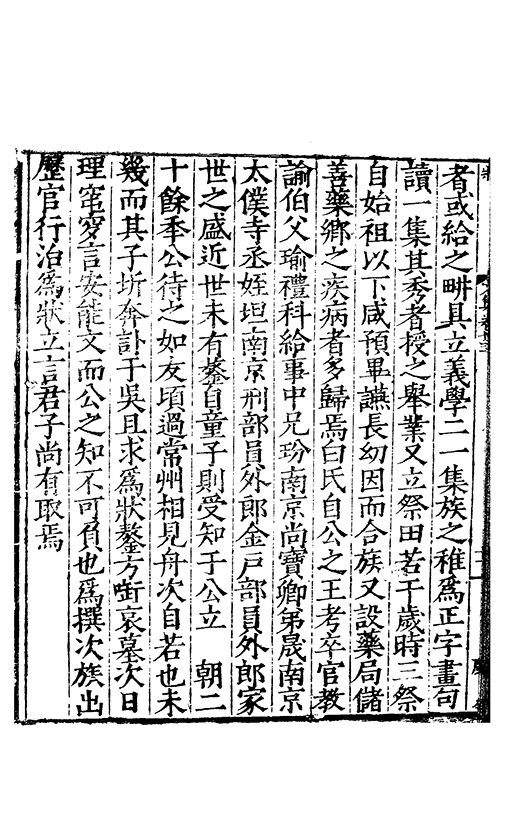 者或給之畊具立義學二一集族之稚爲正字畫句
讀一集其秀者授之舉業又立祭田若干歲時三祭
自始祖以下咸預畢讌長幼因而合族又設藥局儲
善藥鄉之疾病者多歸焉白氏自公之王考卒官教
諭伯父瑜禮科給事中兄玢南京尚寶卿弟晟南京
太僕寺丞姪坦南京刑部員外郎金戸部員外郎家
世之盛近世未有鏊自童子則受知于公立　朝二
十餘年公待之如友頃過常州相見舟次自若也未
幾而其子圻奔訃于吳且求爲狀鏊方衘哀墓次日
理窀穸言安能文而公之知不可負也爲撰次族出
歷官行治爲狀立言君子尚有取焉